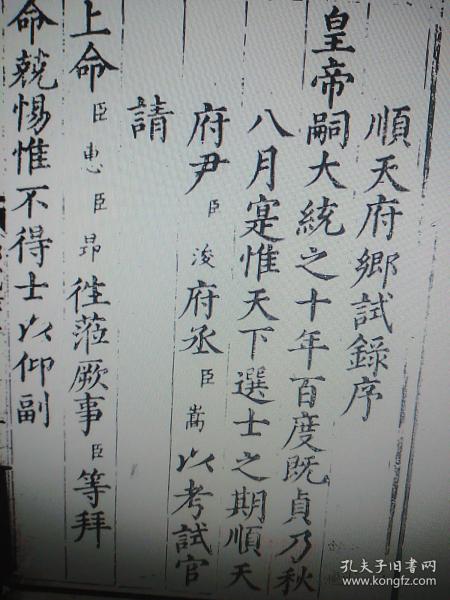 順天府鄉試錄序
皇帝嗣大統之十年百度既貞乃秋
八月寔惟天下選士之期順天
府尹臣浚府丞臣嵩以考試官
請
上命臣惠臣昻徃蒞厥事臣等拜
命兢惕惟不得士以仰副
孔夫子旧书网
www.kongfz.com